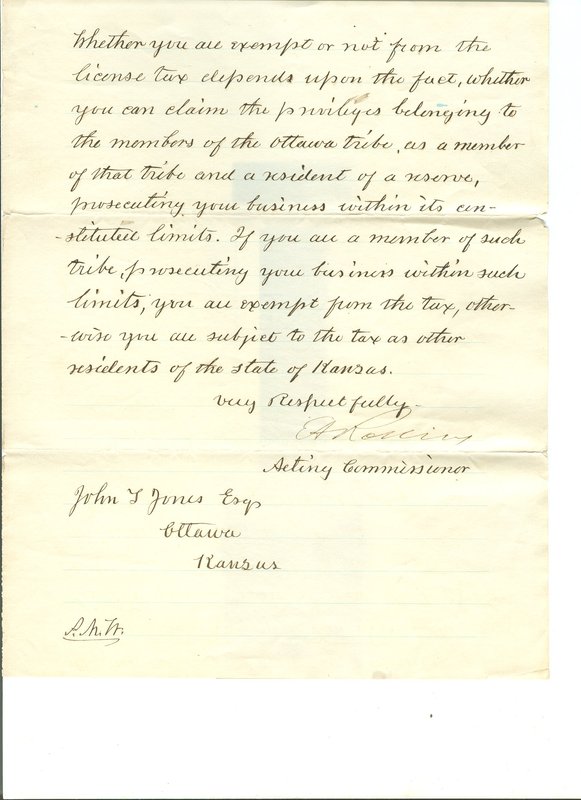 Whether you are exempt or not from the
license tax depends upon the fact, whether
you can claim the privileges belonging to
the members of the Ottawa tribe, as a member
of that tribe and a resident of a reserve,
prosecuting your business within its con-
-stituted limits. If you are a member of such
tribe, prosecuting your business within such
limits, you are exempt from the tax, other-
-wise you are subject to the tax as other
residents of the state of Kansas.
Very Respectfully
Acting Commissioner
John T Jones Esq
Ottawa
Kansas